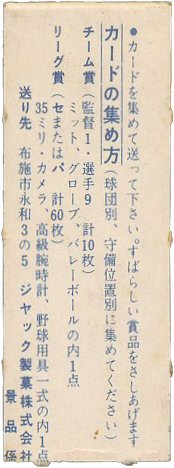 ●カードを集めて送って下さい。すばらしい賞品をさしあげます
カードの集め方(球団別、守備位置別に集めてください)
チーム賞(監督1・選手9 計10枚)
ミット、グローブ、バレーボールの内1点
リーグ賞(セまたはパ 計60枚)
35ミリ・カメラ、高級腕時計、野球用具一式の内1点
送り先 布施市永和3の5 ジャック製菓株式会社
景品係